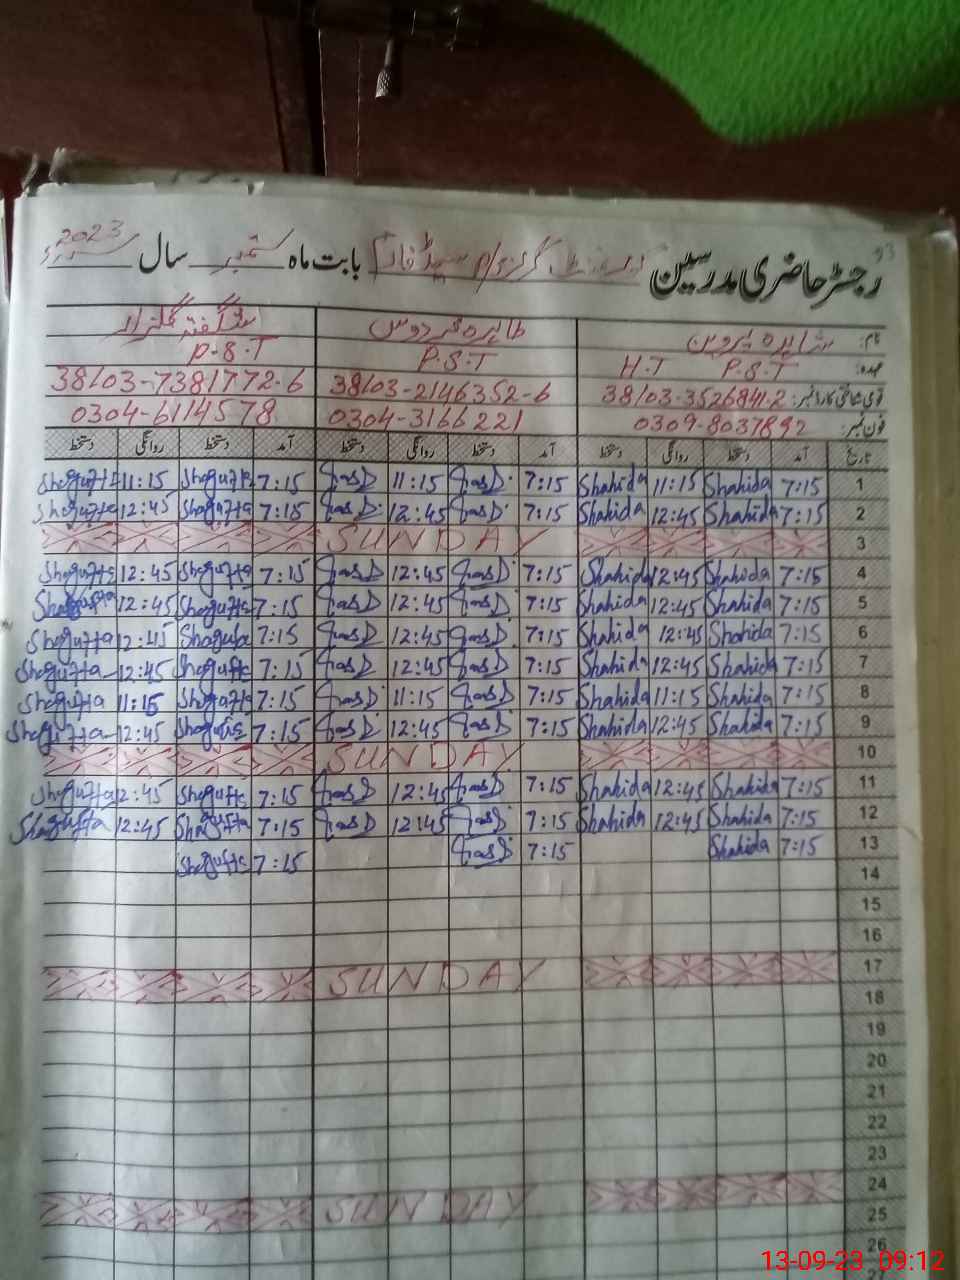 93
رجسٹر حاضری مدرسین گورنمنٹ گرلز پرائمری سیڈ فارم بابت ماہ ستمبر سال 2023
نام: شاہدہ پروین طاہرہ فردوس شگفتہ گلزار
عہدہ: H.T P.S.T P.S.T P.S.T
قومی شناختی کارڈ نمبر: 38103-3526841-2 38103-2146352-6 38103-7381772-6
فون نمبر: 0309-8037892 0304-3166221 0304-6114578
تاریخ آمد دستخط روانگی دستخط آمد دستخط روانگی دستخط آمد دستخط روانگی دستخط
1 7:15 Shahida 11:15 Shahida 7:15 11:15 7:15 Shagufta 11:15 Shagufta
2 7:15 Shahida 12:45 Shahida 7:15 12:45 7:15 Shagufta 12:45 Shagufta
3 SUNDAY
4 7:15 Shahida 12:45 Shahida 7:15 12:45 7:15 Shagufta 12:45 Shagufta
5 7:15 Shahida 12:45 Shahida 7:15 12:45 7:15 Shagufta 12:45 Shagufta
6 7:15 Shahida 12:45 Shahida 7:15 12:45 7:15 Shagufta 12:45 Shagufta
7 7:15 Shahida 12:45 Shahida 7:15 12:45 7:15 Shagufta 12:45 Shagufta
8 7:15 Shahida 11:15 Shahida 7:15 11:15 7:15 Shagufta 11:15 Shagufta
9 7:15 Shahida 12:45 Shahida 7:15 12:45 7:15 Shagufta 12:45 Shagufta
10 SUNDAY
11 7:15 Shahida 12:45 Shahida 7:15 12:45 7:15 Shagufta 12:45 Shagufta
12 7:15 Shahida 12:45 Shahida 7:15 12:45 7:15 Shagufta 12:45 Shagufta
13 7:15 Shahida 7:15 7:15 Shagufta
14
15
16
17 SUNDAY
18
19
20
21
22
23
24 SUNDAY
25
26
27
13-09-23 09:12